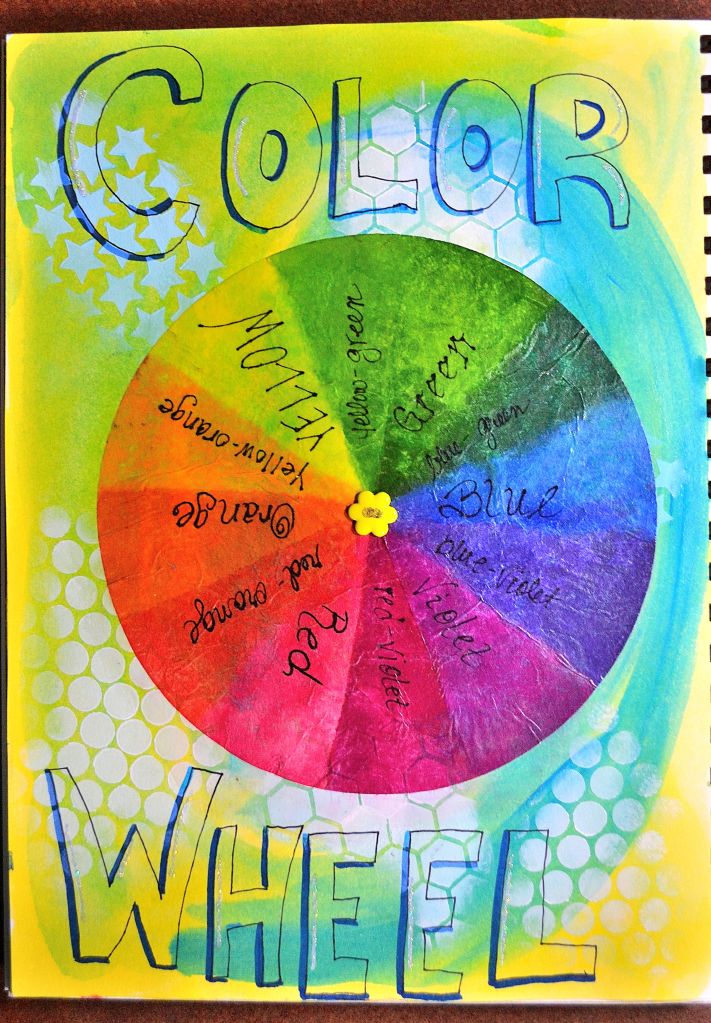 COLOR
YELLOW
yellow-green
Green
blue-green
BLUE
blue-violet
Violet
red-violet
Red
red-orange
Orange
yellow-orange
WHEEL